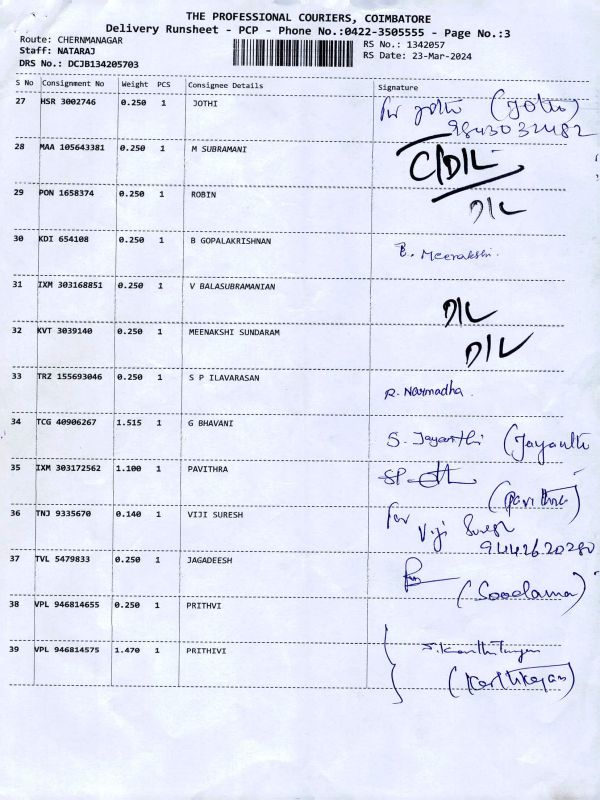 THE PROFESSIONAL COURIERS, COIMBATORE
Delivery Runsheet - PCP - Phone No.:0422-3505555 - Page No.:3
Route: CHERNMANAGAR
RS No.: 1342057
Staff: NATARAJ
RS Date: 23-Mar-2024
DRS No.: DCJB134205703
S No Consignment No Weight PCS Consignee Details Signature
27 HSR 3002746 0.250 1 JOTHI for Jothi (Jothi)
9843032482
28 MAA 105643381 0.250 1 M SUBRAMANI C/D/L
29 PON 1658374 0.250 1 ROBIN D/L
30 KDI 654108 0.250 1 B GOPALAKRISHNAN B. Meenakshi.
31 IXM 303168851 0.250 1 V BALASUBRAMANIAN D/L
32 KVT 3039140 0.250 1 MEENAKSHI SUNDARAM D/L
33 TRZ 155693046 0.250 1 S P ILAVARASAN R. Narmadha.
34 TCG 40906267 1.515 1 G BHAVANI S. Jayanthi (Jayanthi
35 IXM 303172562 1.100 1 PAVITHRA (Pavithra)
36 TNJ 9335670 0.140 1 VIJI SURESH for Viji Suresh
9442620280
37 TVL 5479833 0.250 1 JAGADEESH
38 VPL 946814655 0.250 1 PRITHVI
39 VPL 946814575 1.470 1 PRITHIVI
(Karthikeyan)